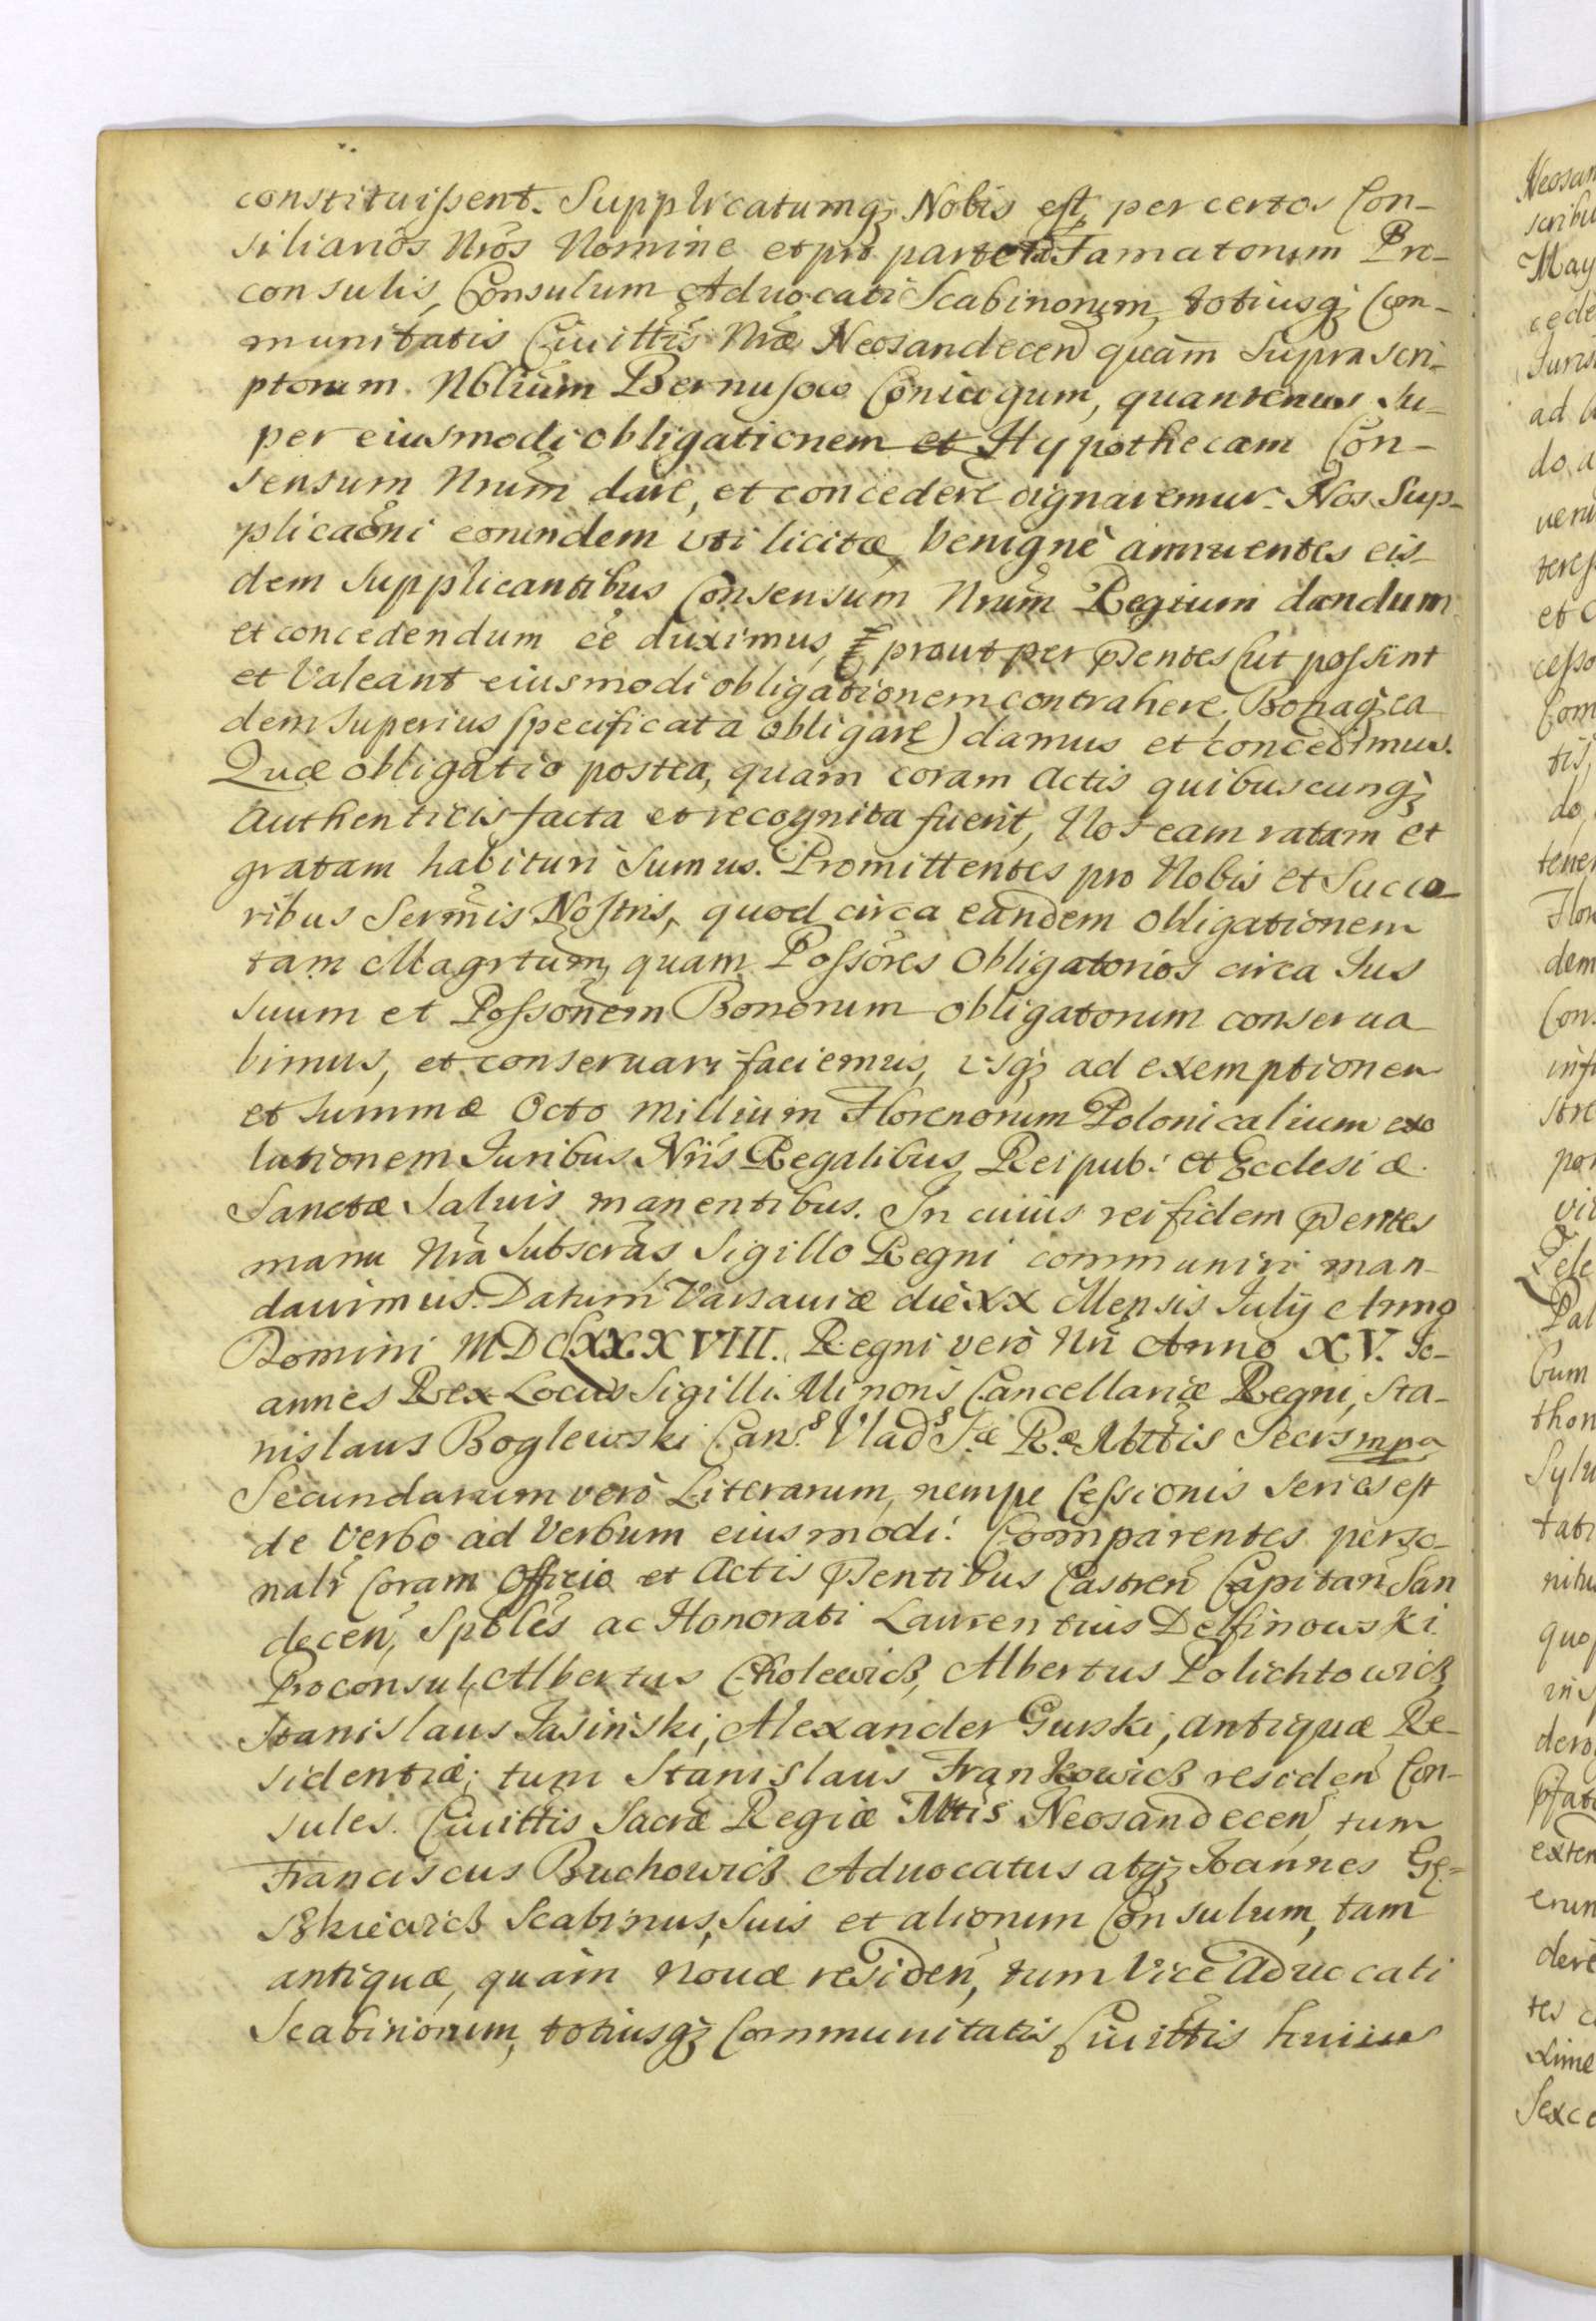 constituissent. Supplicatumq; Nobis est per certos Con-
siliarios Nros Nomine et pro parte tã Famatorum Pro-
consulis, Consulum Aduocati Scabinorum, totiusq; Com-
munitatis Ciuittis Nræ Neosandecen quam suprascri-
ptorum Nblium Bernusow Coniugum, quantenus Su-
per eiusmodi obligationem et Hypothecam Con-
sensum Nrum dare, et concedere dignaremur. Nos Sup-
plicaoni eorundem uti licitæ, benignè annuentes eis-
dem Supplicantibus Consensum Nrum Regium dandum
et concedendum eē duximus, prout per pntes (ut possint
et Valeant eiusmodi obligationem contrahere, Bonaq; ea
dem superius specificata obligare) damus et concedimus.
Quæ obligatio postea, quam coram Actis quibuscunq;
Authenticis facta et recognita fuerit, Nos eam ratam et
gratam habituri sumus. Promittentes pro Nobis et Succo-
ribus Sermis Nostris, quod circa eandem obligationem
tam Magrtum, quam Possores Obligatorios circa Jus
suum et Possonem Bonorum obligatorum conserua
bimus, et conseruari faciemus, usq; ad exemptionem
et summæ Octo millium Florenorum Polonicalium exo
lutionem Juribus Nris Regalibus Reipub: et Ecclesiæ
Sanctæ saluis manentibus. In cuius rei fidem pntes
manu Nra subscras Sigillo Regni communiri man-
dauimus. Datum Varsauiæ die XX Mensis July Anno
Domini MDCLXXXVIII. Regni verò Nri Anno XV. Jo-
annes Rex Locus Sigilli Minoris Cancellariæ Regni, Sta-
nislaus Boglewski Can. Vlad S. R. Mttis Secrs mpa
Secundarum verò Literarum, nempe Cessionis series est
de Verbo ad Verbum eiusmodi: Comparentes perso-
nalr Coram Officio et Actis pntibus Castren Capitan San
decen, Spbles ac Honorati Laurentius Delfinowski
Proconsul, Albertus Cholewicz, Albertus Polichtowicz
Stanislaus Jasinski, Alexander Gurski, antiquæ Re-
sidentiæ; tum Stanislaus Frankowicz residen Con-
sules Ciuittis Sacræ Regiæ Mttis Neosandecen, tum
Franciscus Buchowicz Aduocatus atq; Joannes Ge-
szkiewicz Scabinus, suis et aliorum Consulum, tam
antiquæ, quàm nouæ residen, tum ViceAduocati
Scabinorum, totiusq; Communitatis Ciuittis huius